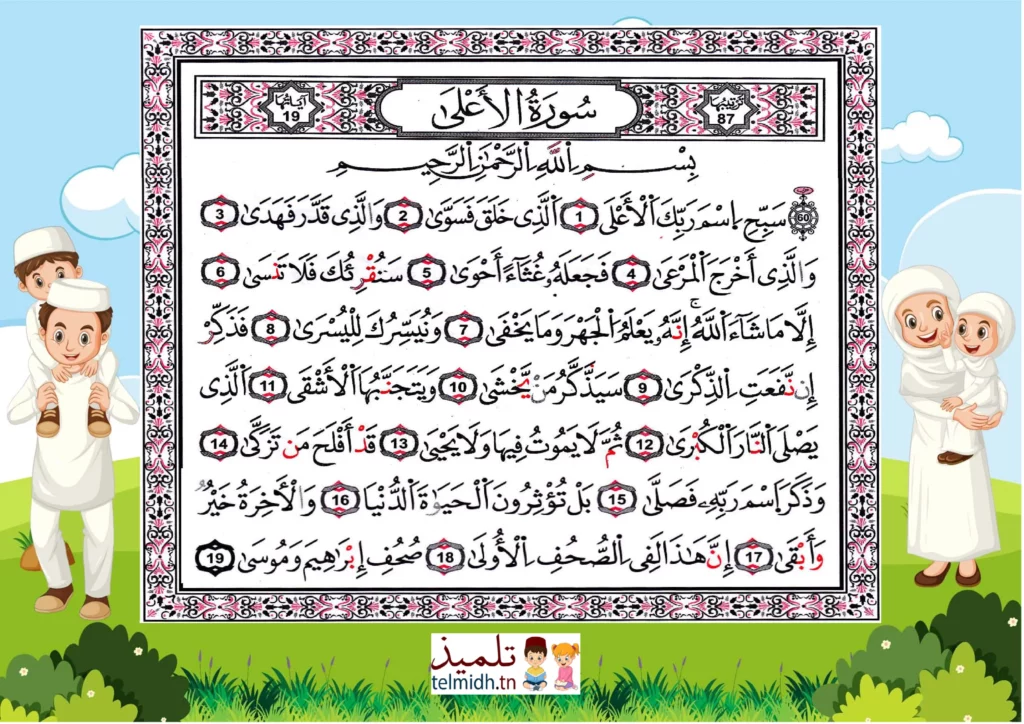 ترتيبها 87 سُورَةُ الأَعْلَىٰ آياتها 19
بِسْمِ اِللَّهِ اِلرَّحْمَٰنِ اِلرَّحِيمِ
60 سَبِّحِ اِسْمَ رَبِّكَ اَلْأَعْلَى 1 اَلَّذِى خَلَقَ فَسَوَّىٰ 2 وَالَّذِى قَدَّرَ فَهَدَىٰ 3
وَالَّذِى أَخْرَجَ اَلْمَرْعَىٰ 4 فَجَعَلَهُۥ غُثَآءً أَحْوَىٰ 5 سَنُقْرِئُكَ فَلَا تَنسَىٰ 6
إِلَّا مَا شَآءَ اَللَّهُ إِنَّهُۥ يَعْلَمُ اُلْجَهْرَ وَمَا يَخْفَىٰ 7 وَنُيَسِّرُكَ لِلْيُسْرَىٰ 8 فَذَكِّرْ
إِن نَّفَعَتِ اِلذِّكْرَىٰ 9 سَيَذَّكَّرُ مَنْ يَّخْشَىٰ 10 وَيَتَجَنَّبُهَا اَلْأَشْقَى 11 اَلَّذِى
يَصْلَى اَلنَّارَ اَلْكُبْرَىٰ 12 ثُمَّ لَا يَمُوتُ فِيهَا وَلَا يَحْيَىٰ 13 قَدْ أَفْلَحَ مَن تَزَكَّىٰ 14
وَذَكَرَ اَسْمَ رَبِّهِۦ فَصَلَّىٰ 15 بَلْ تُؤْثِرُونَ اَلْحَيَوٰةَ اَلدُّنْيَا 16 وَالْأَخِرَةُ خَيْرٌ
وَأَبْقَىٰ 17 إِنَّ هَٰذَا لَفِى اِلصُّحُفِ اِلْأُولَىٰ 18 صُحُفِ إِبْرَٰهِيمَ وَمُوسَىٰ 19
تلميذ
telmidh.tn